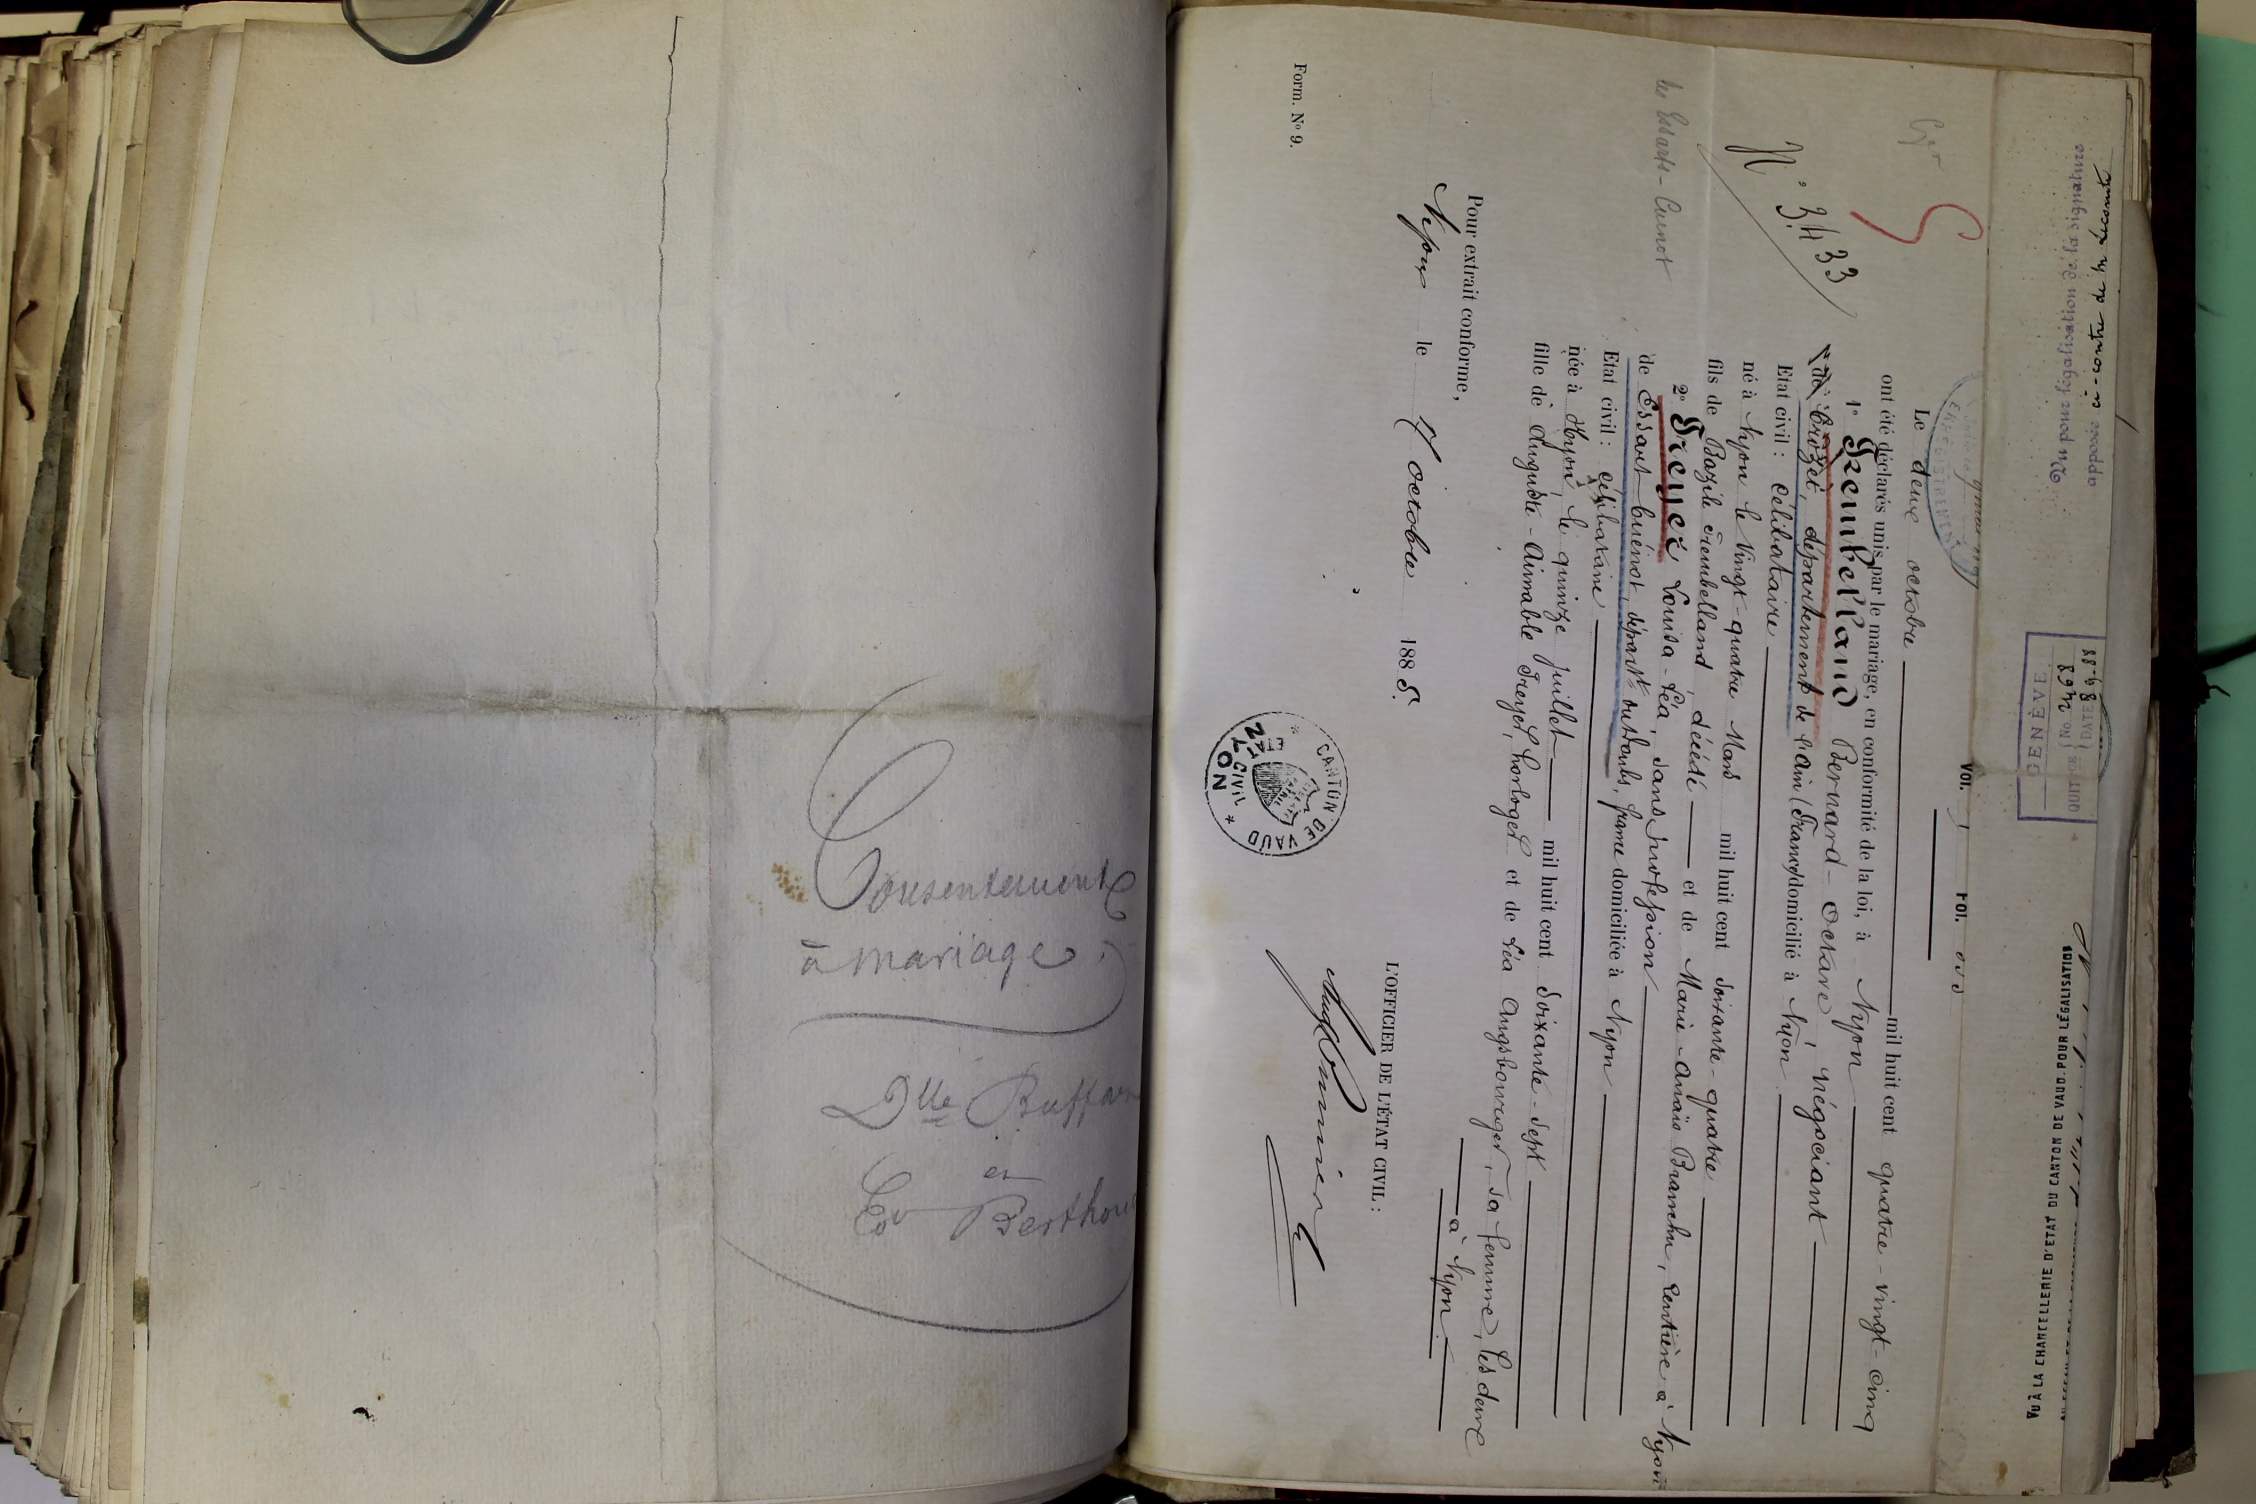 Consentement
à mariage
Dlle Buffa
en
Berthou
Vu pour légalisation de la signature
apposée ci-contre de Mr Lecomte
GENÈVE
No. 2468
DATE 8.9.88
VU À LA CHANCELLERIE D'ETAT DU CANTON DE VAUD POUR LÉGALISATION
VOL. FOL.
N° 3433
Le deux octobre mil huit cent quatre-vingt-cinq
ont été déclarés unis par le mariage, en conformité de la loi, à Nyon
1° Grembelland Bernard-Octave, négociant
de Crozet, département de l'Ain (France) domicilié à Nyon
Etat civil : célibataire
né à Nyon le vingt-quatre Mars mil huit cent soixante-quatre
fils de Bazile Grembelland, décédé et de Marie-Anaïs Branchu, rentière à Nyon
2° Greyer Louisa-Léa, sans profession
les Essarts-Cuenot
de Essart-Cuénot, départt du Doubs, france domiciliée à Nyon
Etat civil : célibataire
née à Nyon, le quinze juillet mil huit cent soixante-sept
fille de Auguste-Aimable Greyer, horloger et de Léa Augsbourger, sa femme, les deux
à Nyon.
Pour extrait conforme,
Nyon le 7 octobre 1885.
L'OFFICIER DE L'ÉTAT CIVIL :
CANTON DE VAUD
ETAT CIVIL
NYON
Form. No 9.